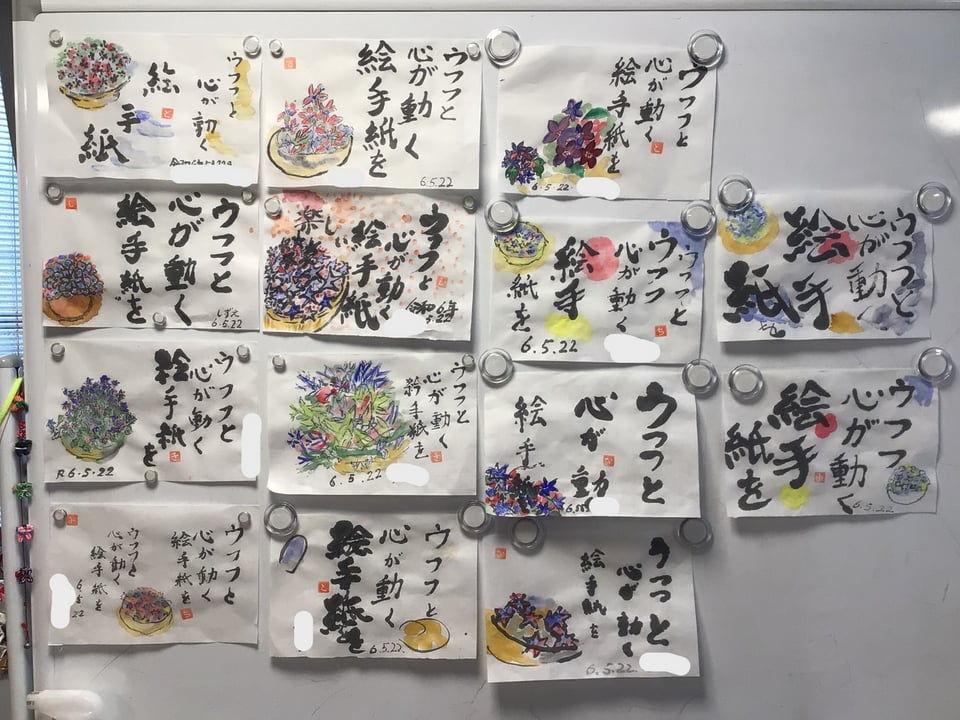 ウフフと
心が動く
絵
手
紙
ウフフと
心が動く
絵手紙を
6.5.22
ウフフと
心が動く
絵手紙を
6.5.22
ウフフと
心が動く
絵手紙を
しずえ
6.5.22
ウフフと
心が動く
絵手紙
楽しい
ウフフと
ウフフ
心が動く
絵手
紙を
6.5.22
ウフフと
心が動く
絵手
紙
ウフフと
心が動く
絵手紙
を
R.6.5.22
ウフフと
心が動く
絵手紙を
6.5.22
ウフフと
心が
動
絵手紙
ウフフ
心が動く
絵手
紙を
6.5.22
ウフフと
心が動く
絵手紙を
ウフフと
心が動く
絵手紙を
6
22
ウフフと
心が動く
絵手紙を
6.5.22.
ウフフと
心が動く
絵手紙を
6.5.22.